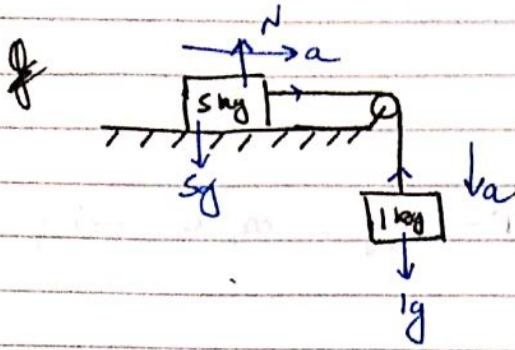 N
a
5 kg
5g
a
1 kg
1g